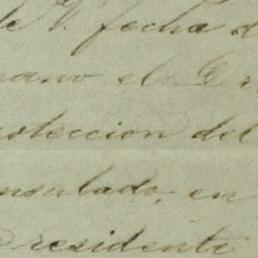 de V. fecha d
mano el Dr
roteccion del
nsulado, en
Presidente